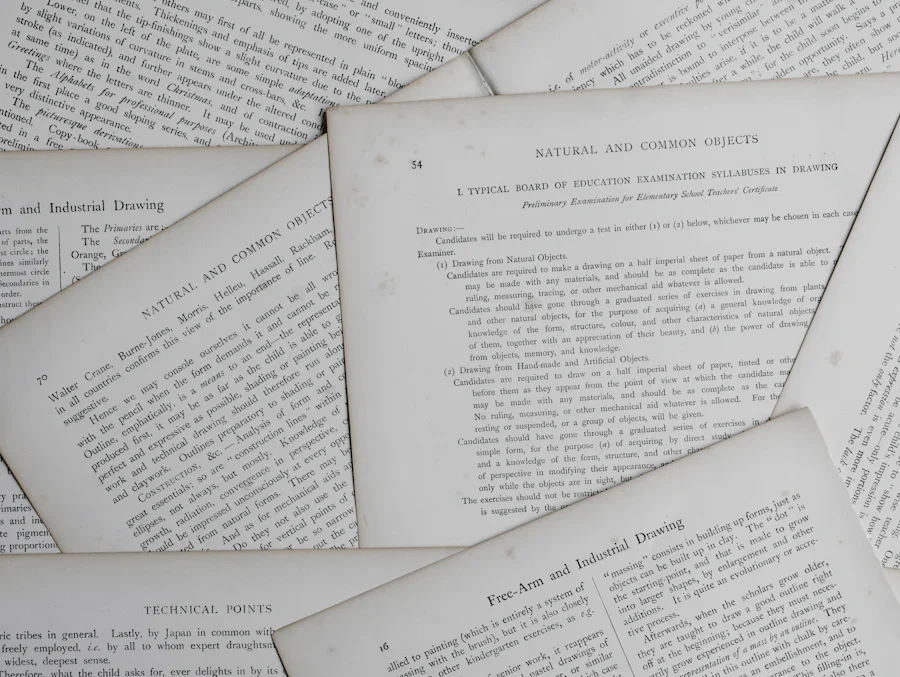 others may first of all be represented in plain
parts, showing the more uniform spacing
Lower, on the left of the plate are some simple adaptations
by slight variations of curvature in stems and cross-bars, &c.
stroke (as indicated), and further appears under the altered
at same time) as in the word Christmas, and of contraction
Greetings where the letters are thinner. It may be used
The Alphabets for professional purposes
in the first place a good sloping series, and
very distinctive appearance.
The picturesque derivations
Copy-book
of motor-activity or executive
which has to be reckoned
All unaided drawing by young
contradistinction to "verisimilar"
is bound to interpose between
arise, if it is to be a
after a while, the child will walk
for the child soon begins to
golden opportunity. Says a
they often show
child, but
and Industrial Drawing
The Primaries are
The
Orange,
The
arts from the
of parts, the
st circle; the
lines similarly
nermost circle
Secondaries in
order.
nstruct these
70
NATURAL AND COMMON OBJECTS
Walter Crane, Burne-Jones, Morris, Helleu, Hassall, Rackham,
in all countries confirms this view of the importance of line.
suggestive.
Hence we may console ourselves it cannot be all
with the pencil when the form demands it and cannot be
Outline, emphatically, is a means to an end—the
produced first, it may be as far as the child is able to
perfect and expressive as possible, shading or painting
and technical drawing should therefore run
work. Outlines preparatory to shading or
and claywork.
CONSTRUCTION, &c.—Analysis of form and
great essentials; so are "construction lines" within
ellipses, not always, but mostly. Knowledge of
growth, radiation, convergence in perspective,
could be impressed unconsciously at every
from natural forms. There may
And as for mechanical aids
Do they not also use the
for vertical points of
or be so narrow
54
NATURAL AND COMMON OBJECTS
I. TYPICAL BOARD OF EDUCATION EXAMINATION SYLLABUSES IN DRAWING
Preliminary Examination for Elementary School Teachers' Certificate
DRAWING:—
Candidates will be required to undergo a test in either (1) or (2) below, whichever may be chosen in each case
Examiner.
(1) Drawing from Natural Objects.
Candidates are required to make a drawing on a half imperial sheet of paper from a natural object.
may be made with any materials, and should be as complete as the candidate is able to
ruling, measuring, tracing, or other mechanical aid whatever is allowed.
Candidates should have gone through a graduated series of exercises in drawing from plants
and other natural objects, for the purpose of acquiring (a) a general knowledge of
knowledge of the form, structure, colour, and other characteristics of natural objects
of them, together with an appreciation of their beauty, and (b) the power of drawing
from objects, memory, and knowledge.
(2) Drawing from Hand-made and Artificial Objects.
Candidates are required to draw on a half imperial sheet of paper, tinted or
before them as they appear from the point of view at which the candidate
may be made with any materials, and should be as complete as the
No ruling, measuring, or other mechanical aid whatever is allowed. For the
resting or suspended, or a group of objects, will be given.
Candidates should have gone through a graduated series of exercises in
simple form, for the purpose (a) of acquiring by direct study
and a knowledge of the form, structure, and other
of perspective in modifying their appearance,
only while the objects are in sight, but
The exercises should not be
is suggested by the
TECHNICAL POINTS
tribes in general. Lastly, by Japan in common with
freely employed, i.e. by all to whom expert
widest, deepest sense.
Therefore, what the child asks for, ever delights in by its
16
Free-Arm and Industrial Drawing
allied to painting (which is entirely a system of
massing with the brush), but it is also closely
other kindergarten exercises, as e.g.
senior work, it reappears
pasted drawings of
or similar
which case
"massing" consists in building up forms, just as
objects can be built up in clay. The "dot" is
the starting-point, and that is made to grow
into larger shapes, by enlargement and other
additions. It is quite an evolutionary or accre-
tive process.
Afterwards, when the scholars grow older,
they are taught to draw a good outline right
off at the beginning; because they must neces-
sarily grow experienced in outline drawing and
representation of a mass by an outline. They
in this outline with chalk by care-
as an embellishment, and to
appearance to the object.
This filling-in is,
also there